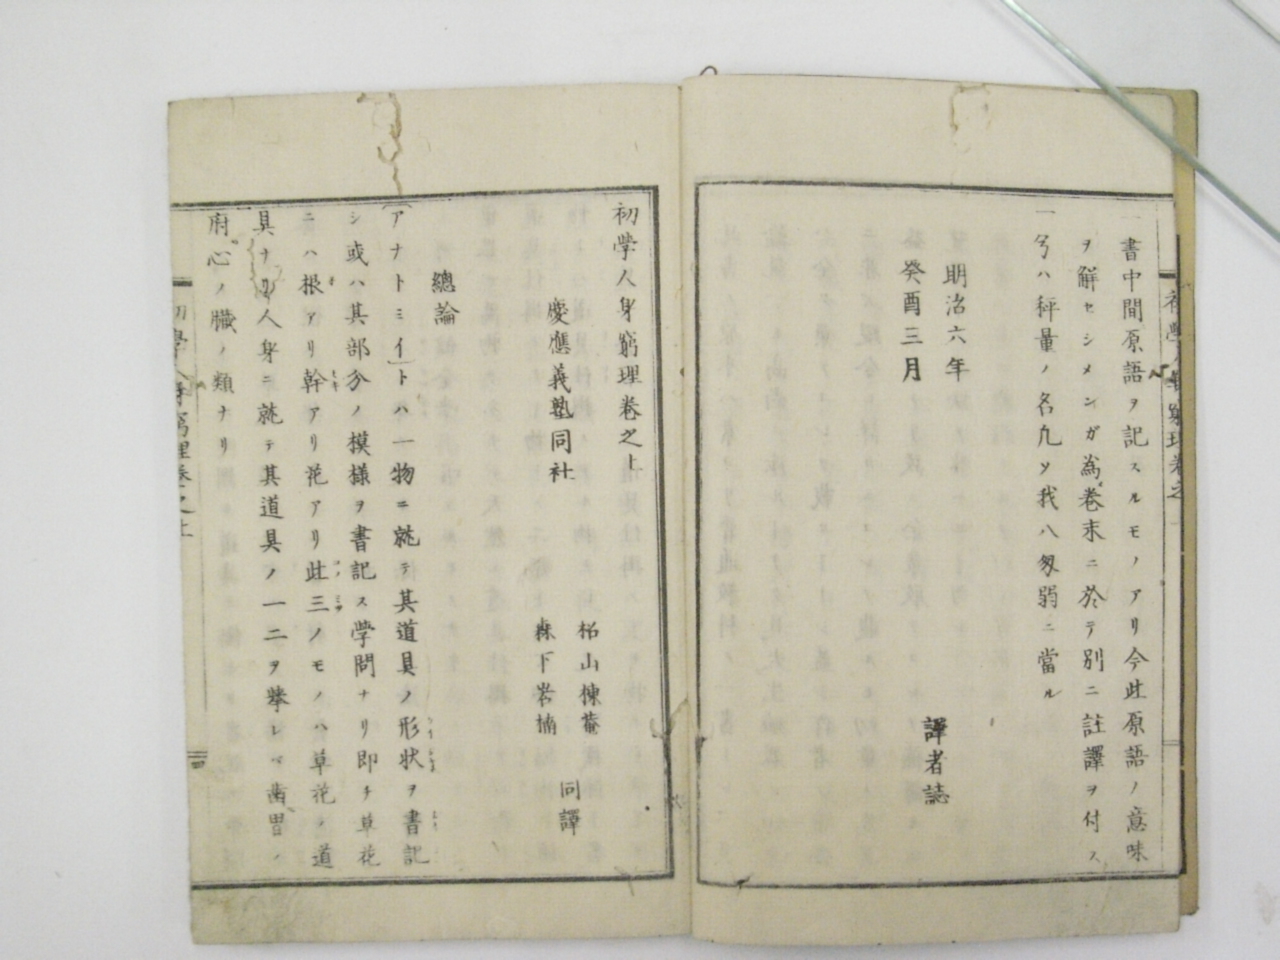 一書中間原語ヲ記スルモノアリ今此原語ノ意味
ヲ解セシメンガ為卷末ニ於テ別ニ註譯ヲ付ス
一兮ハ秤量ノ名九ソ我八匁弱ニ當ル
明治六年
癸酉三月
譯者誌
初學人身窮理卷之上
慶應義塾同社
柘山棟菴
森下岩楠
同譯
總論
アナトミイトハ一物ニ就テ其道具ノ形状ヲ書記
シ或ハ其部分ノ模様ヲ書記ス学問ナリ即チ草花
ニハ根アリ幹アリ花アリ此三ノモノハ草花ノ道
具ナリ人身ニ就テ其道具ノ一二ヲ擧レバ歯胃ノ
府心ノ臓ノ類ナリ
初學人身窮理卷之上